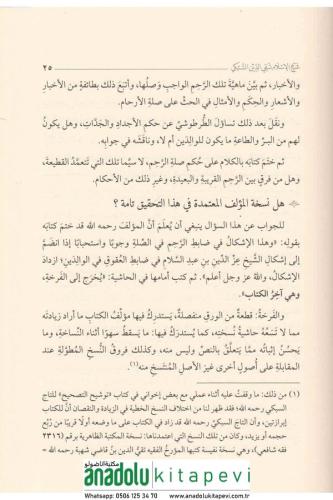 شيخ الإسلام تقي الدين السبكي ٢٥
والأخبار، ثم بيَّن ماهيَّةَ تلك الرَّحِم الواجبِ وَصلُها، وأتبَعَ ذلك بطائفةٍ من الأخبار
والأشعارِ والحِكَم والأمثالِ في الحثِّ على صلةِ الأرحام.
ونقَلَ بعد ذلك تساؤلَ الطُّرطوشيِّ عن حكم الأجدادِ والجَدَّاتِ، وهل يكونُ
لهم من البِرِّ والطاعةِ ما يكون للوالدِينَ أم لا، وناقَشَه في جوابِه.
ثم ختَمَ كتابَه بالكلام على حُكم صلةِ الرَّحِم، لا سيَّما تلك التي تَتعمَّدُ القطيعةَ،
وهل من فرقٍ بين الرَّحِم القريبةِ والبعيدةِ، وغيرِ ذلك من الأحكام.
هل نسخة المؤلف المعتمدة في هذا التحقيق تامة ؟
للجواب عن هذا السؤالِ ينبغي أن يُعلَمَ أنَّ المؤلف رحمه الله قد ختَمَ كتابَه
بقولِه: «وهذا الإشكالُ في ضابطِ الرَّحِم في الصِّلة وجوبًا واستحبابًا إذا انضَمَّ
إلى إشكالِ الشَّيخِ عزِّ الدِّين بنِ عبدِ السلام في ضابطِ العقوقِ في الوالدين، ازدادَ
الإشكال، والله عز وجل أعلم». ثم كتب أمامها في الحاشية: «يُخرَج إلى الفَرخة،
وهي آخِرُ الكتاب».
والفَرخةُ: قطعةٌ من الورقِ منفصلةٌ، يَستدرِكُ فيها مؤلِّفُ الكتابِ ما أراد زيادتَه
مما لا تَسَعُه حاشيةُ نُسختِه، كما يَستدرِكُ فيها: ما يَسقُطُ سهوًا أثناءَ النِّساخة، وما
يَحسُنُ إثباتُه ممَّا يَتعلَّقُ بالنصِّ وليس منه، وكذلك فروقُ النُّسَخِ المطوَّلةِ عند
المقابلةِ على أصولٍ أخرى غيرِ الأصلِ المُنتسَخِ منه(١).
(١) من ذلك: ما وقفت عليه أثناء عملي مع بعض إخواني في كتاب «توشيح التصحيح» للتاج
السبكي رحمه الله؛ فقد ظهر لنا من اختلاف النسخ الخطية في الزيادة والنقصان أنَّ للكتاب
إبرازتين، وأن التاج رحمه الله قد زاد في الكتاب على ما وضعه أولًا قريبًا من رُبع
حجمه أو يزيد، وكان من تلك النسخ التي اعتمدناها: نسخة المكتبة الظاهرية برقم (٢٣١٦
فقه شافعي)، وهي نسخة نفيسة كتبها المؤرخ الفقيه تقيُّ الدين بنُ قاضي شهبة رحمه الله -
مكتبة اناضولو
anadolu kitapevi
Whatsapp: 0506 125 34 70 - www.anadolukitapevi.com